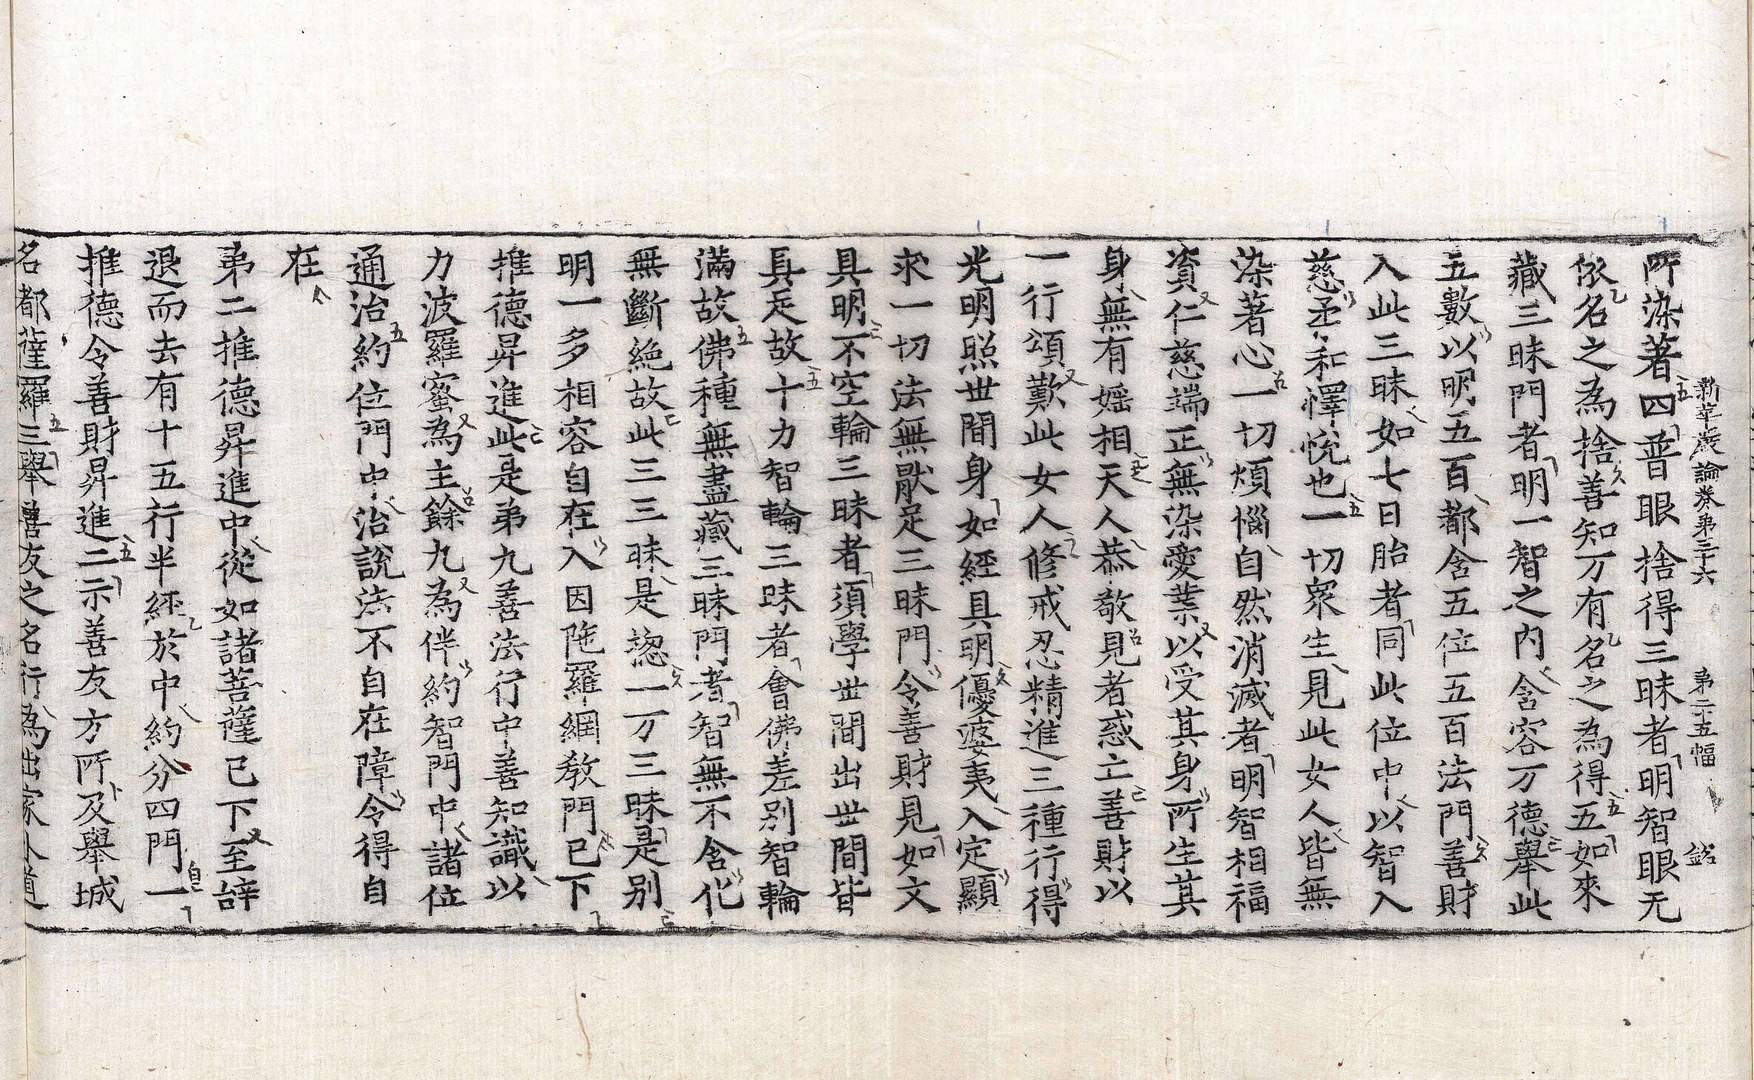 新華嚴論卷第三十六 第二十五幅 銘
所染著四普眼捨得三昧者明智眼无
依名之為捨善知万有名之為得五如來
藏三昧門者明一智之內含容万德舉此
五數以明五百都含五位五百法門善財
入此三昧如七日胎者同此位中以智入
慈柔和懌悅也一切衆生見此女人皆無
染著心一切煩惱自然消滅者明智相福
資仁慈端正無染愛業以受其身所生其
身無有婬相天人恭敬見者惑亡善財以
一行頌歎此女人修戒忍精進三種行得
光明照世間身如經具明優婆夷入定顯
求一切法無猒足三昧門令善財見如文
具明不空輪三昧者須學世間出世間皆
具足故十力智輪三昧者會佛差別智輪
滿故佛種無盡藏三昧門者智無不含化
無斷絶故此三三昧是揔一万三昧是别
明一多相容自在入因陁羅網教門已下
推德昇進此是弟九善法行中善知識以
力波羅蜜為主餘九為伴約智門中諸位
通治約位門中治說法不自在障令得自
在
弟二推德昇進中從如諸菩薩已下至辝
退而去有十五行半經於中約分四門一
推德令善財昇進二示善友方所及舉城
名都薩羅三舉善友之名行為出家外道